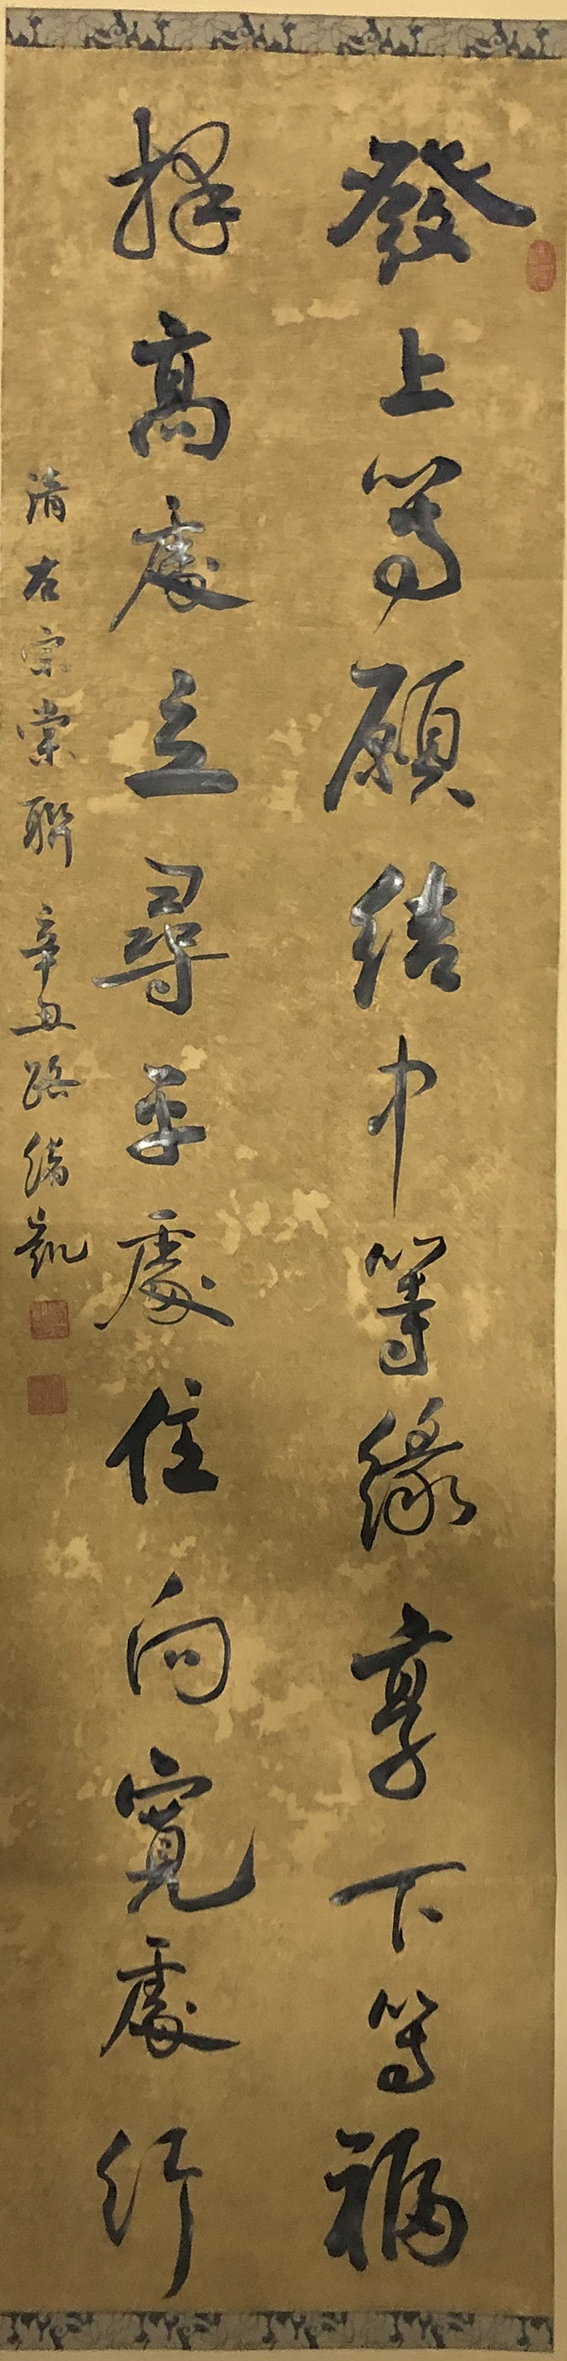 發上等願結中等緣享下等福
擇高處立尋平處住向寬處行
清左宗棠聯 辛丑路緒凱